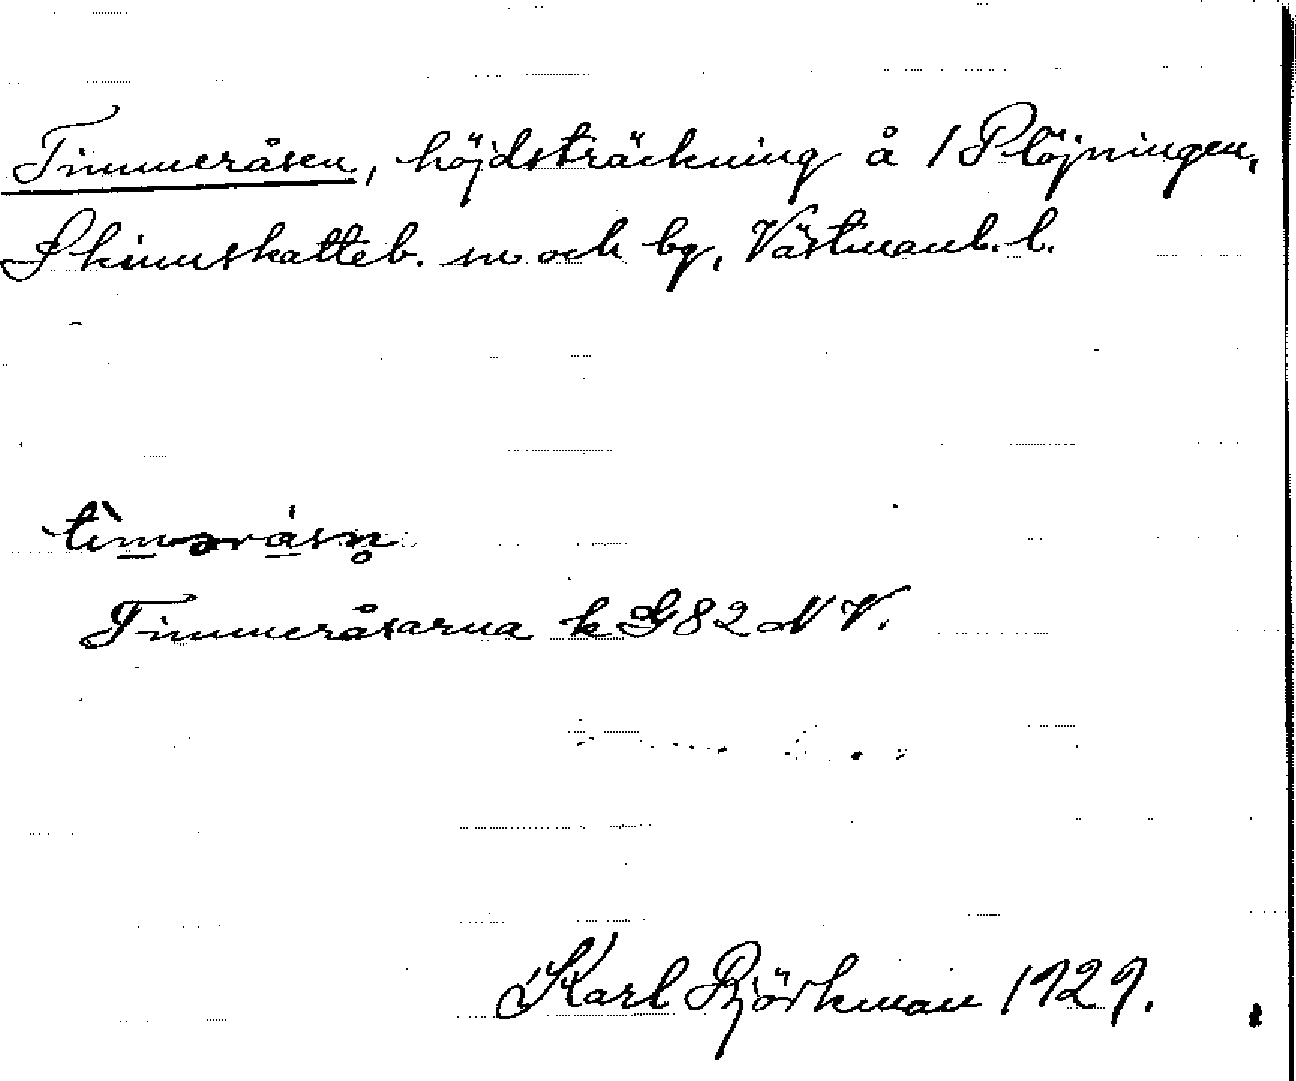 Timmeråsen, höjdsträckning å 1 Plöjningen,
Skinnskatteb. sn och bg, Västmanl. l.
tìmərásn̥
Timmeråsarna k G82 N V.
Karl Björkman 1929.